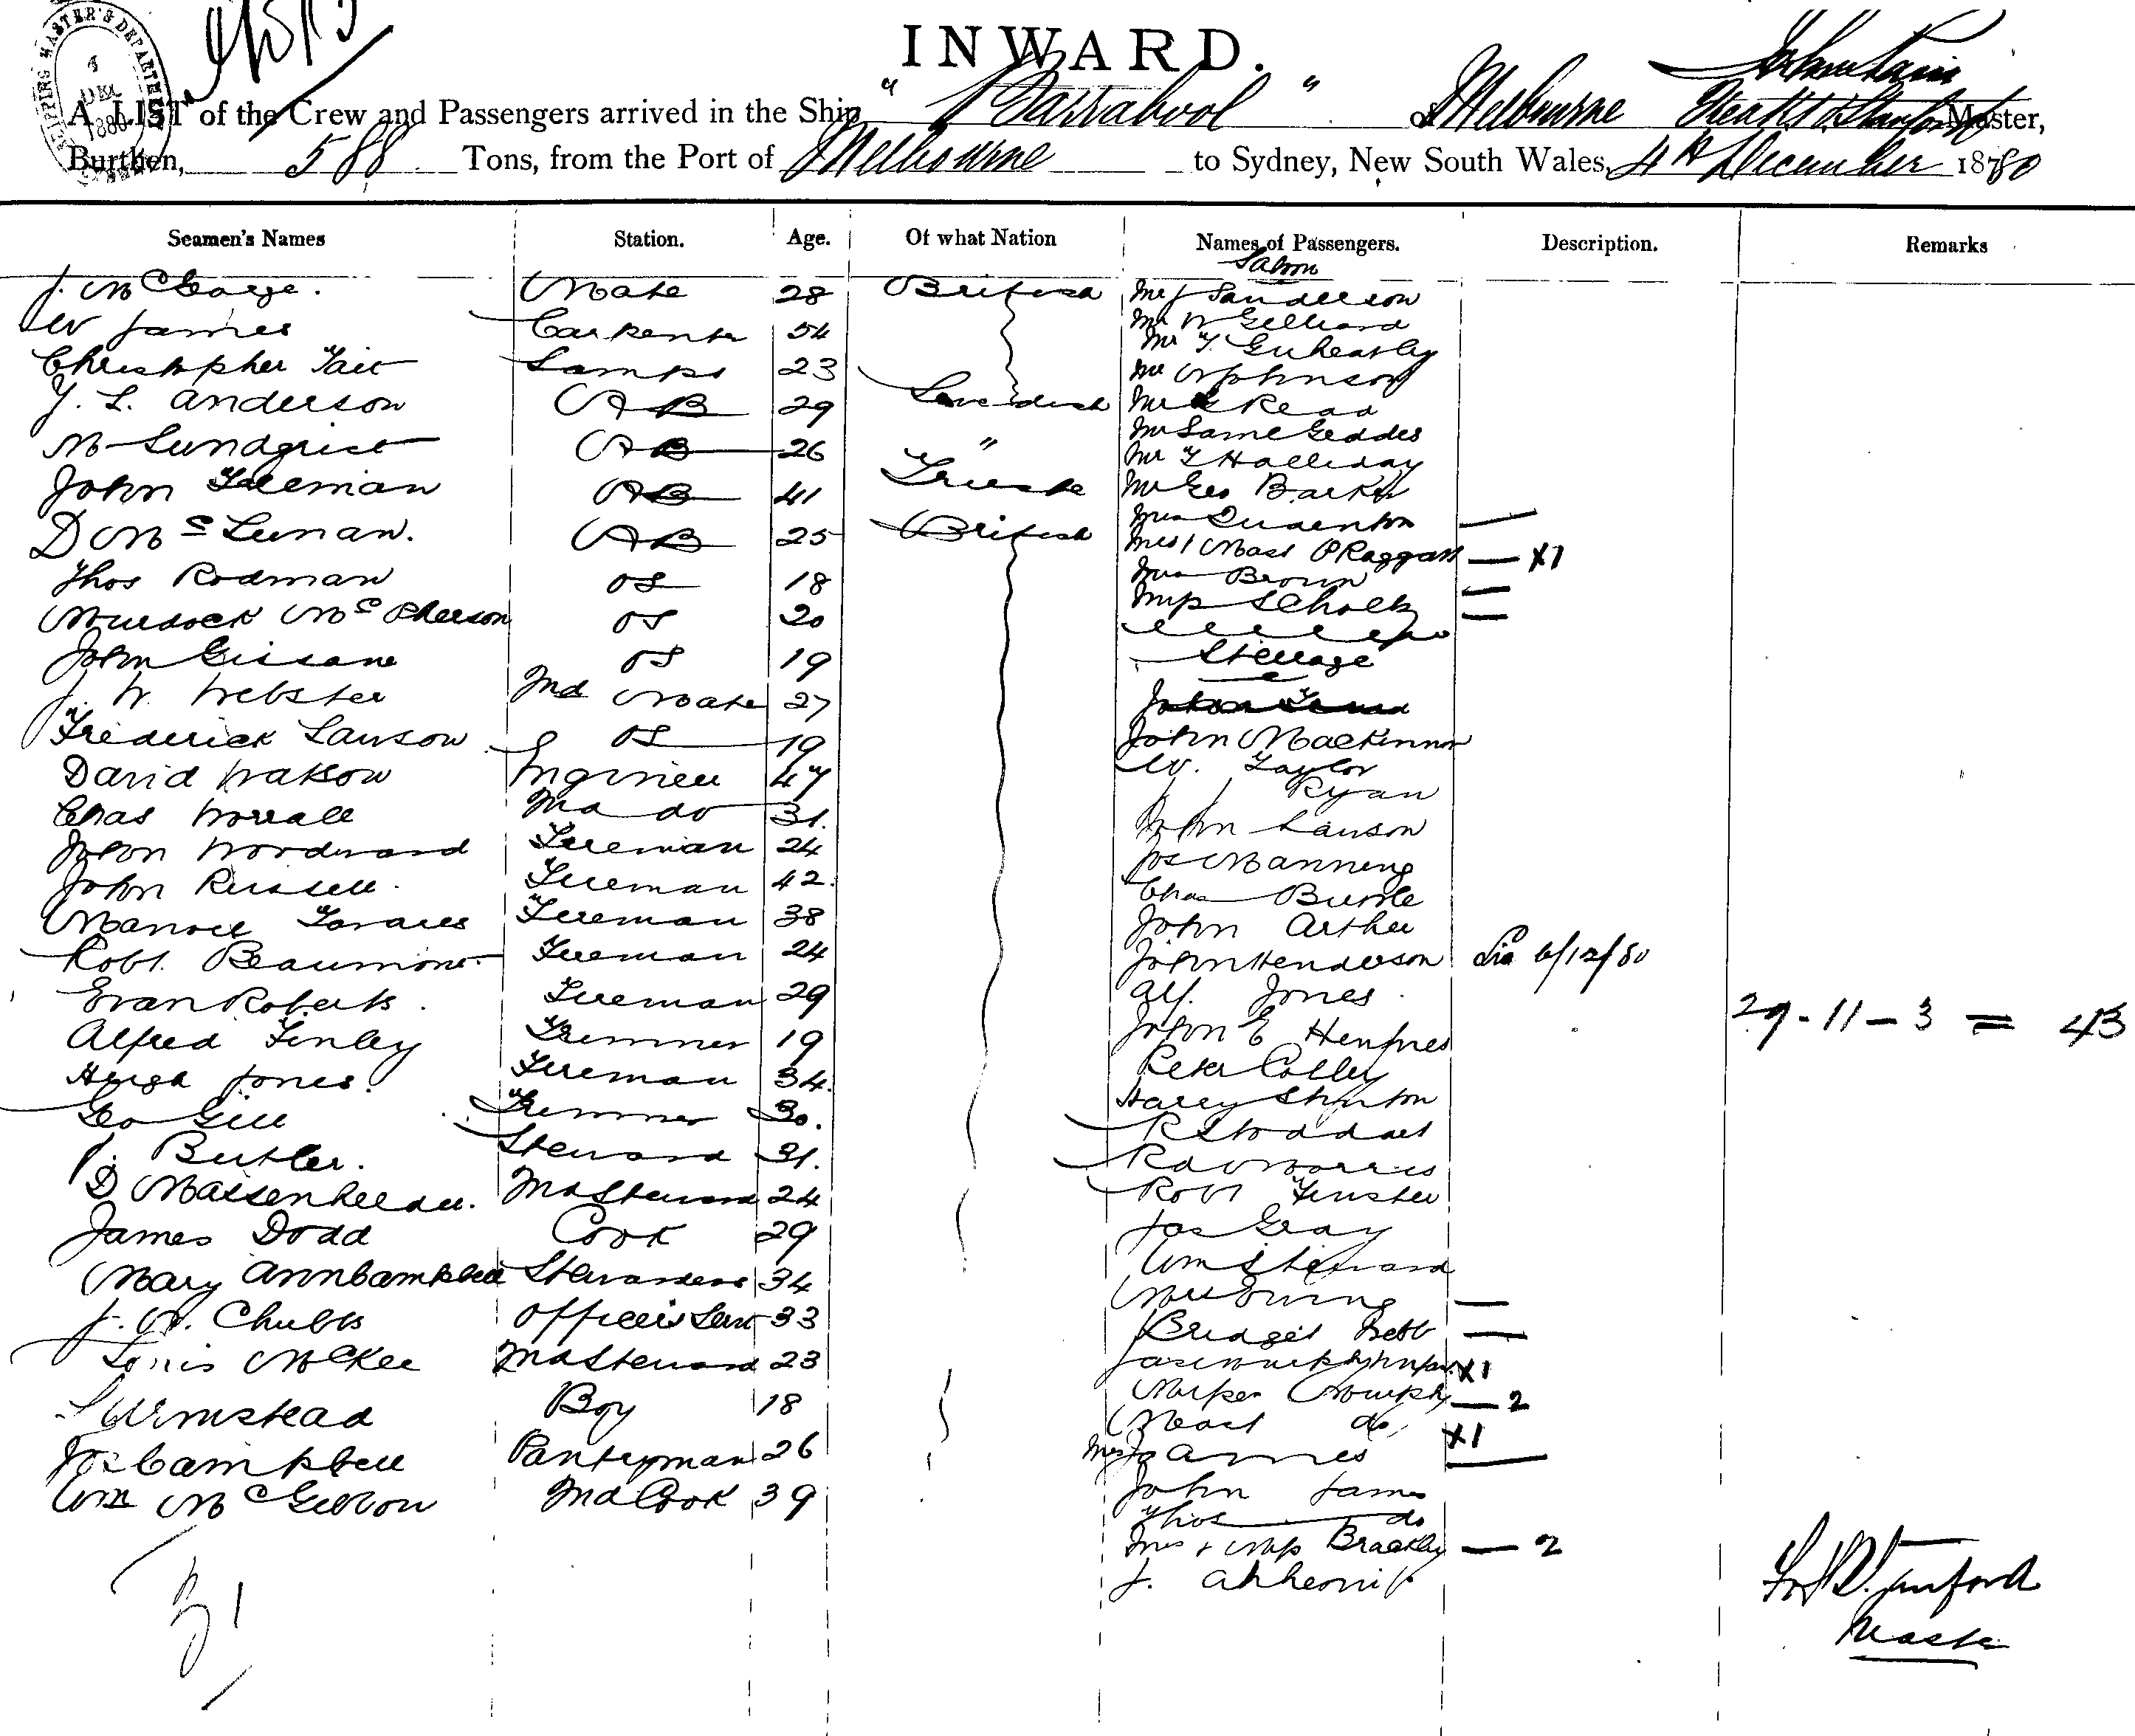 SHIPPING MASTER'S DEPARTMENT
4 DEC 1880
INWARD.
A LIST of the Crew and Passengers arrived in the Ship " Barrabool " of Melbourne Master,
Burthen, 588 Tons, from the Port of Melbourne to Sydney, New South Wales, 4th December 1880
Seamen's Names Station. Age. Of what Nation Names of Passengers. Description. Remarks
Saloon
J. McGeorge. Mate 28 British Mr J Sanderson
W James Carpenter 54 Mr W Gilliard
Christopher Tait Lamps 23 Mr Johnson
J. L. Anderson AB 29 Swedish Mr Read
M Lundqrist AB 26 " Mr Saml Geddes
Mr T Halliday
John Freeman AB 41 Trieste Mr Geo Barker
D McLennan. AB 25 British Mrs
Mrs & Mast Raggatt — X1
Thos Rodman OS 18 Mrs Brown —
Murdock McPherson OS 20 Miss Scholtz —
John Gissane OS 19 Steerage
J. W. Webster 2nd Mate 27
Frederick Lawson OS 19 John Mackinnon
David Watson Engineer 47 W. Taylor
Ryan
Chas Worrall 2nd do 31. John Lawson
John Woodward Fireman 24 Jos Manning
John Russell. Fireman 42. Chas Burke
Manoel Tavares Fireman 38 John Arthur
Robt. Beaumont Fireman 24 John Henderson 6/12/80
Evan Roberts. Fireman 29 Alf. Jones
29 - 11 - 3 = 43
Alfred Finley Trimmer 19 John E Humfries
Hugh Jones. Fireman 34. Peter Colley
Geo Gill Trimmer 30. Harry Stanton
J. Butler. Steward 31. R Stoddart
Rd Morris
D 2nd Steward 24 Robt
James Dodd Cook 29 Jas Gray
Mary Ann Campbell Stewardess 34 Wm Steward
J. W. Chubb Officers Servt 33 Mrs Ewing —
Bridget Webb —
Louis McKee 2nd Steward 23 X1
Armstead Boy 18 Misses Murphy — 2
Mast do X1
Jos Campbell Pantryman 26 Mrs James —
Wm McGibbon 2nd Cook 39 John James
Thos do
Mrs & Miss Brackley — 2
J.
31
Stanford
Master